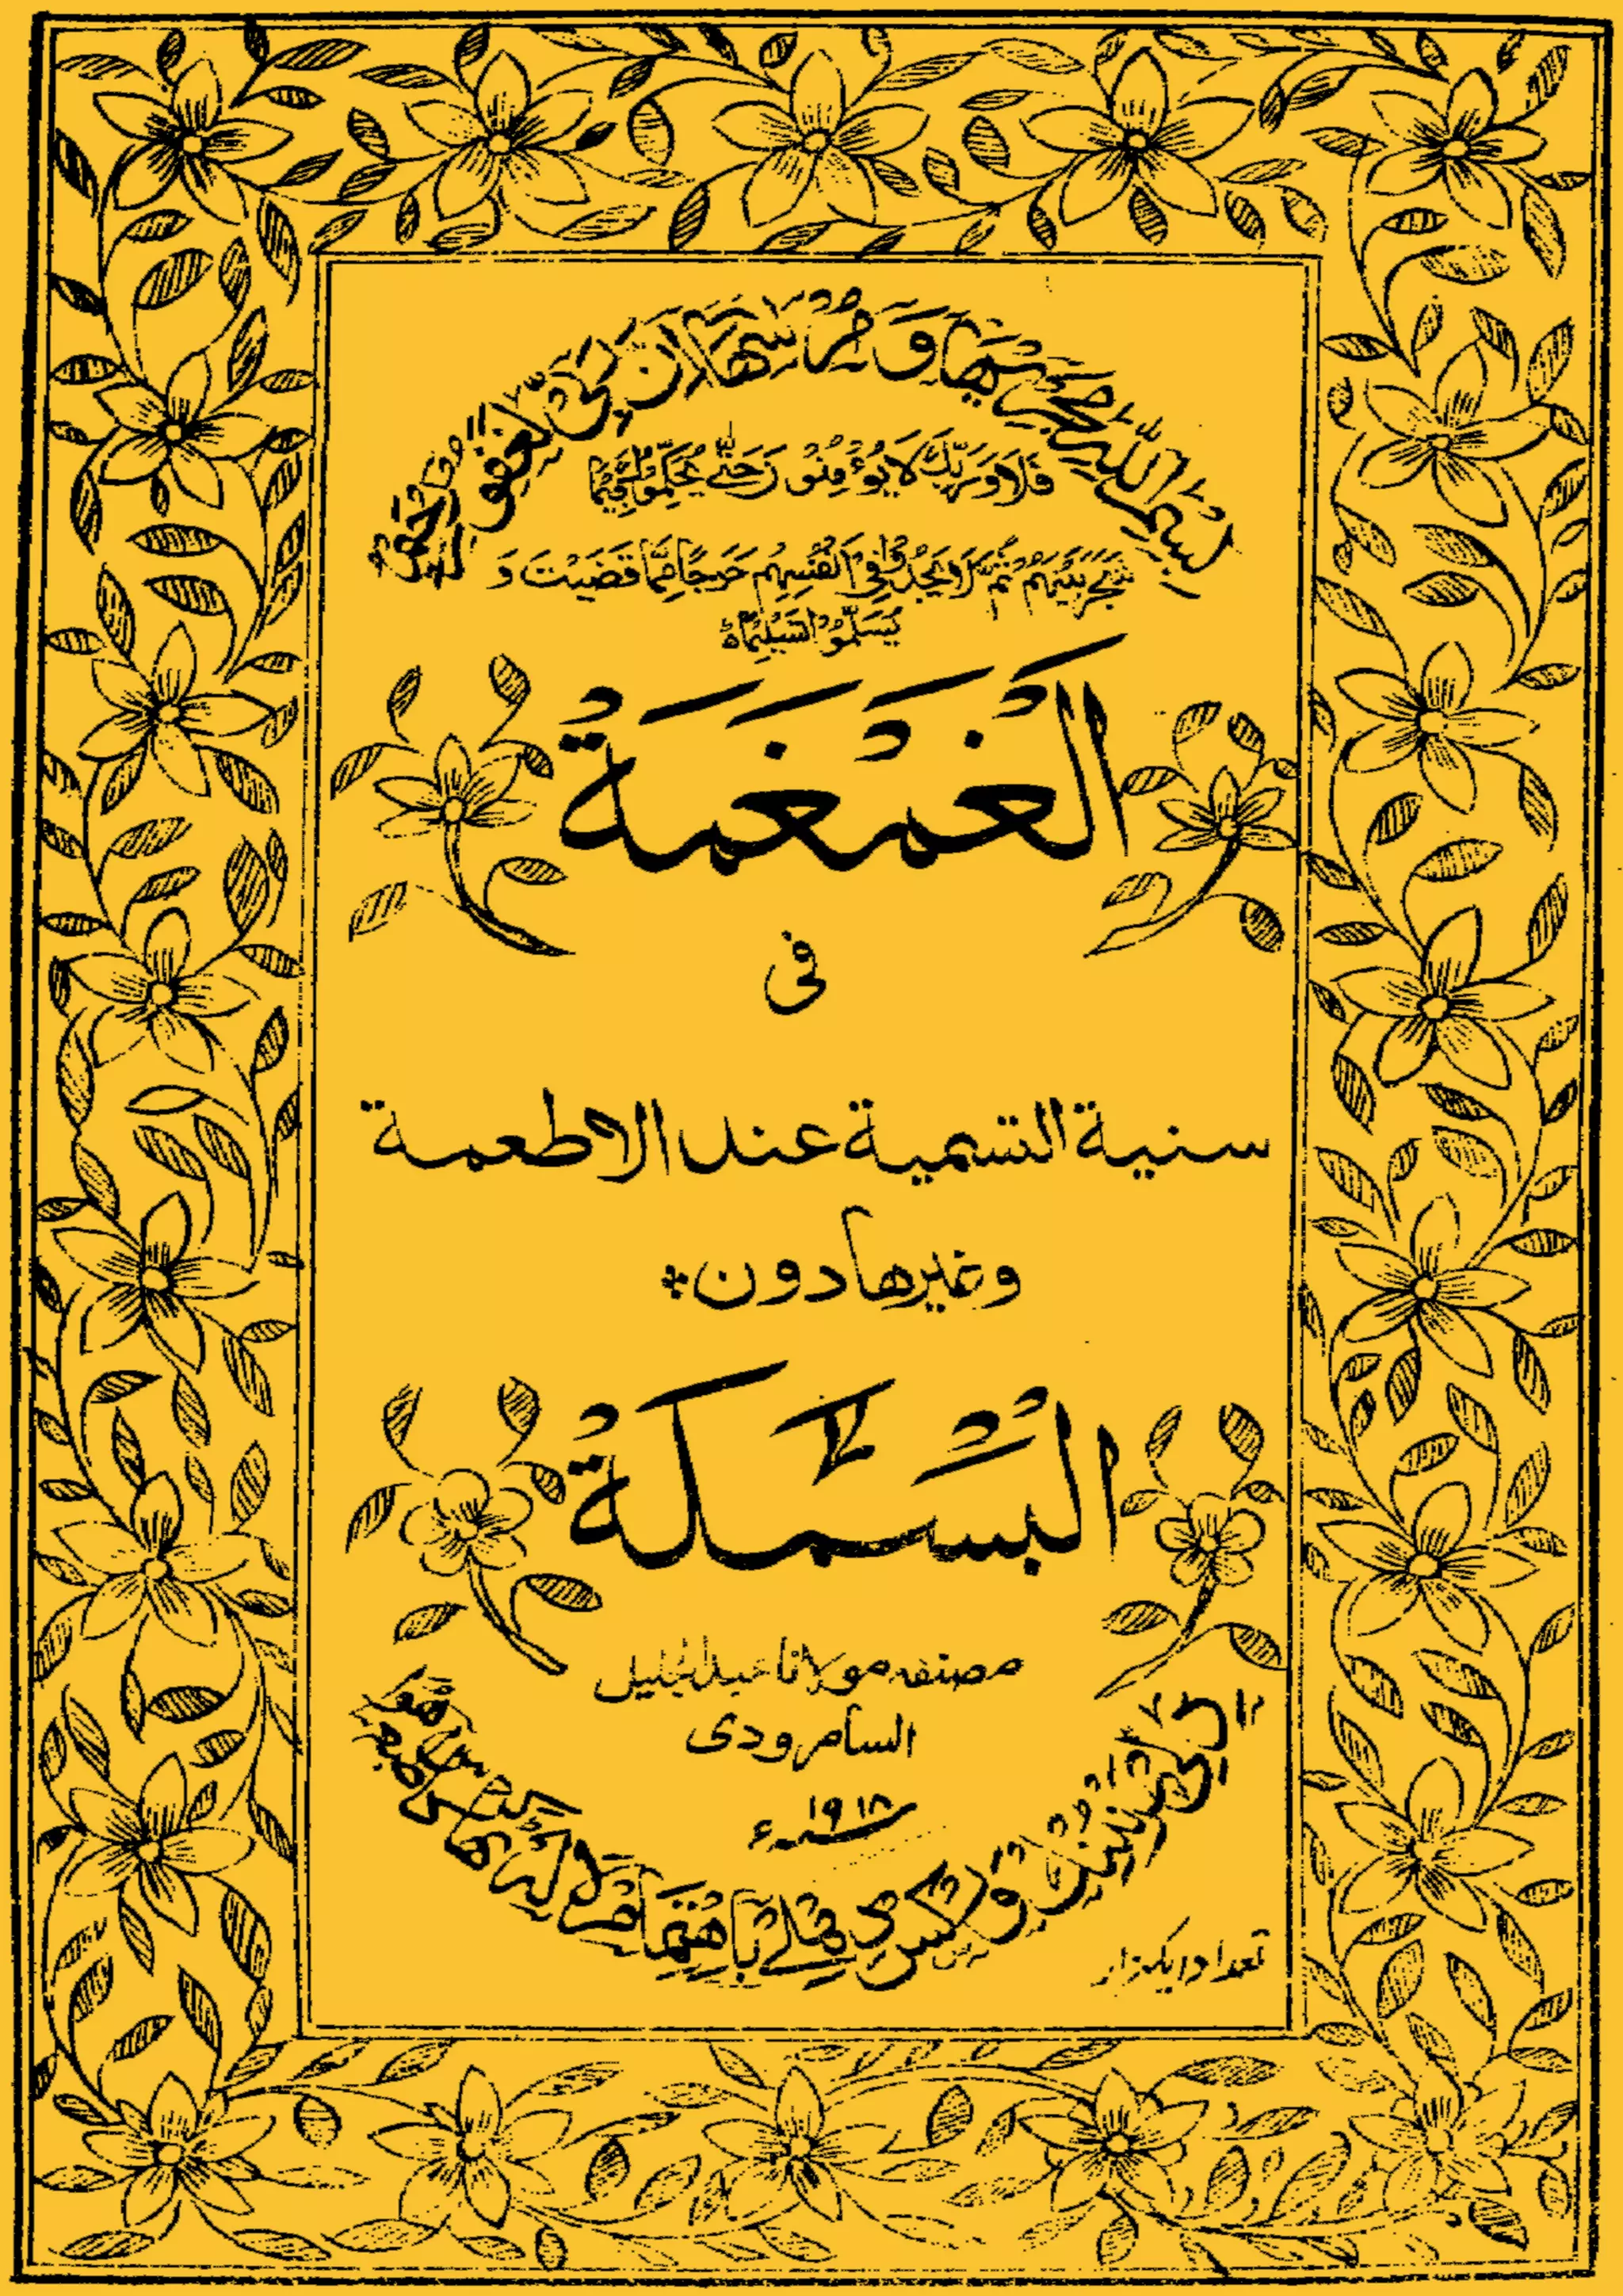 بسم الله مجريها و مرسها ان ربي لغفور رحيم
فَلَا وَرَبِّكَ لَا يُؤْمِنُوْنَ حَتّٰى يُحَكِّمُوْكَ فِيْمَا
شَجَرَ بَيْنَهُمْ ثُمَّ لَا يَجِدُوْا فِيْ اَنْفُسِهِمْ حَرَجًا مِّمَّا قَضَيْتَ وَ
يُسَلِّمُوْا تَسْلِيْمًا
اَلْغُمْغُمَةُ
فى
سنية التسمية عند الاطعمة
وغيرها دون
اَلْبَسْمَلَةُ
مصنفه مولانا عبد الجليل
السامرودى
سنه ١٩١٨ء
تعداد ايكهزار